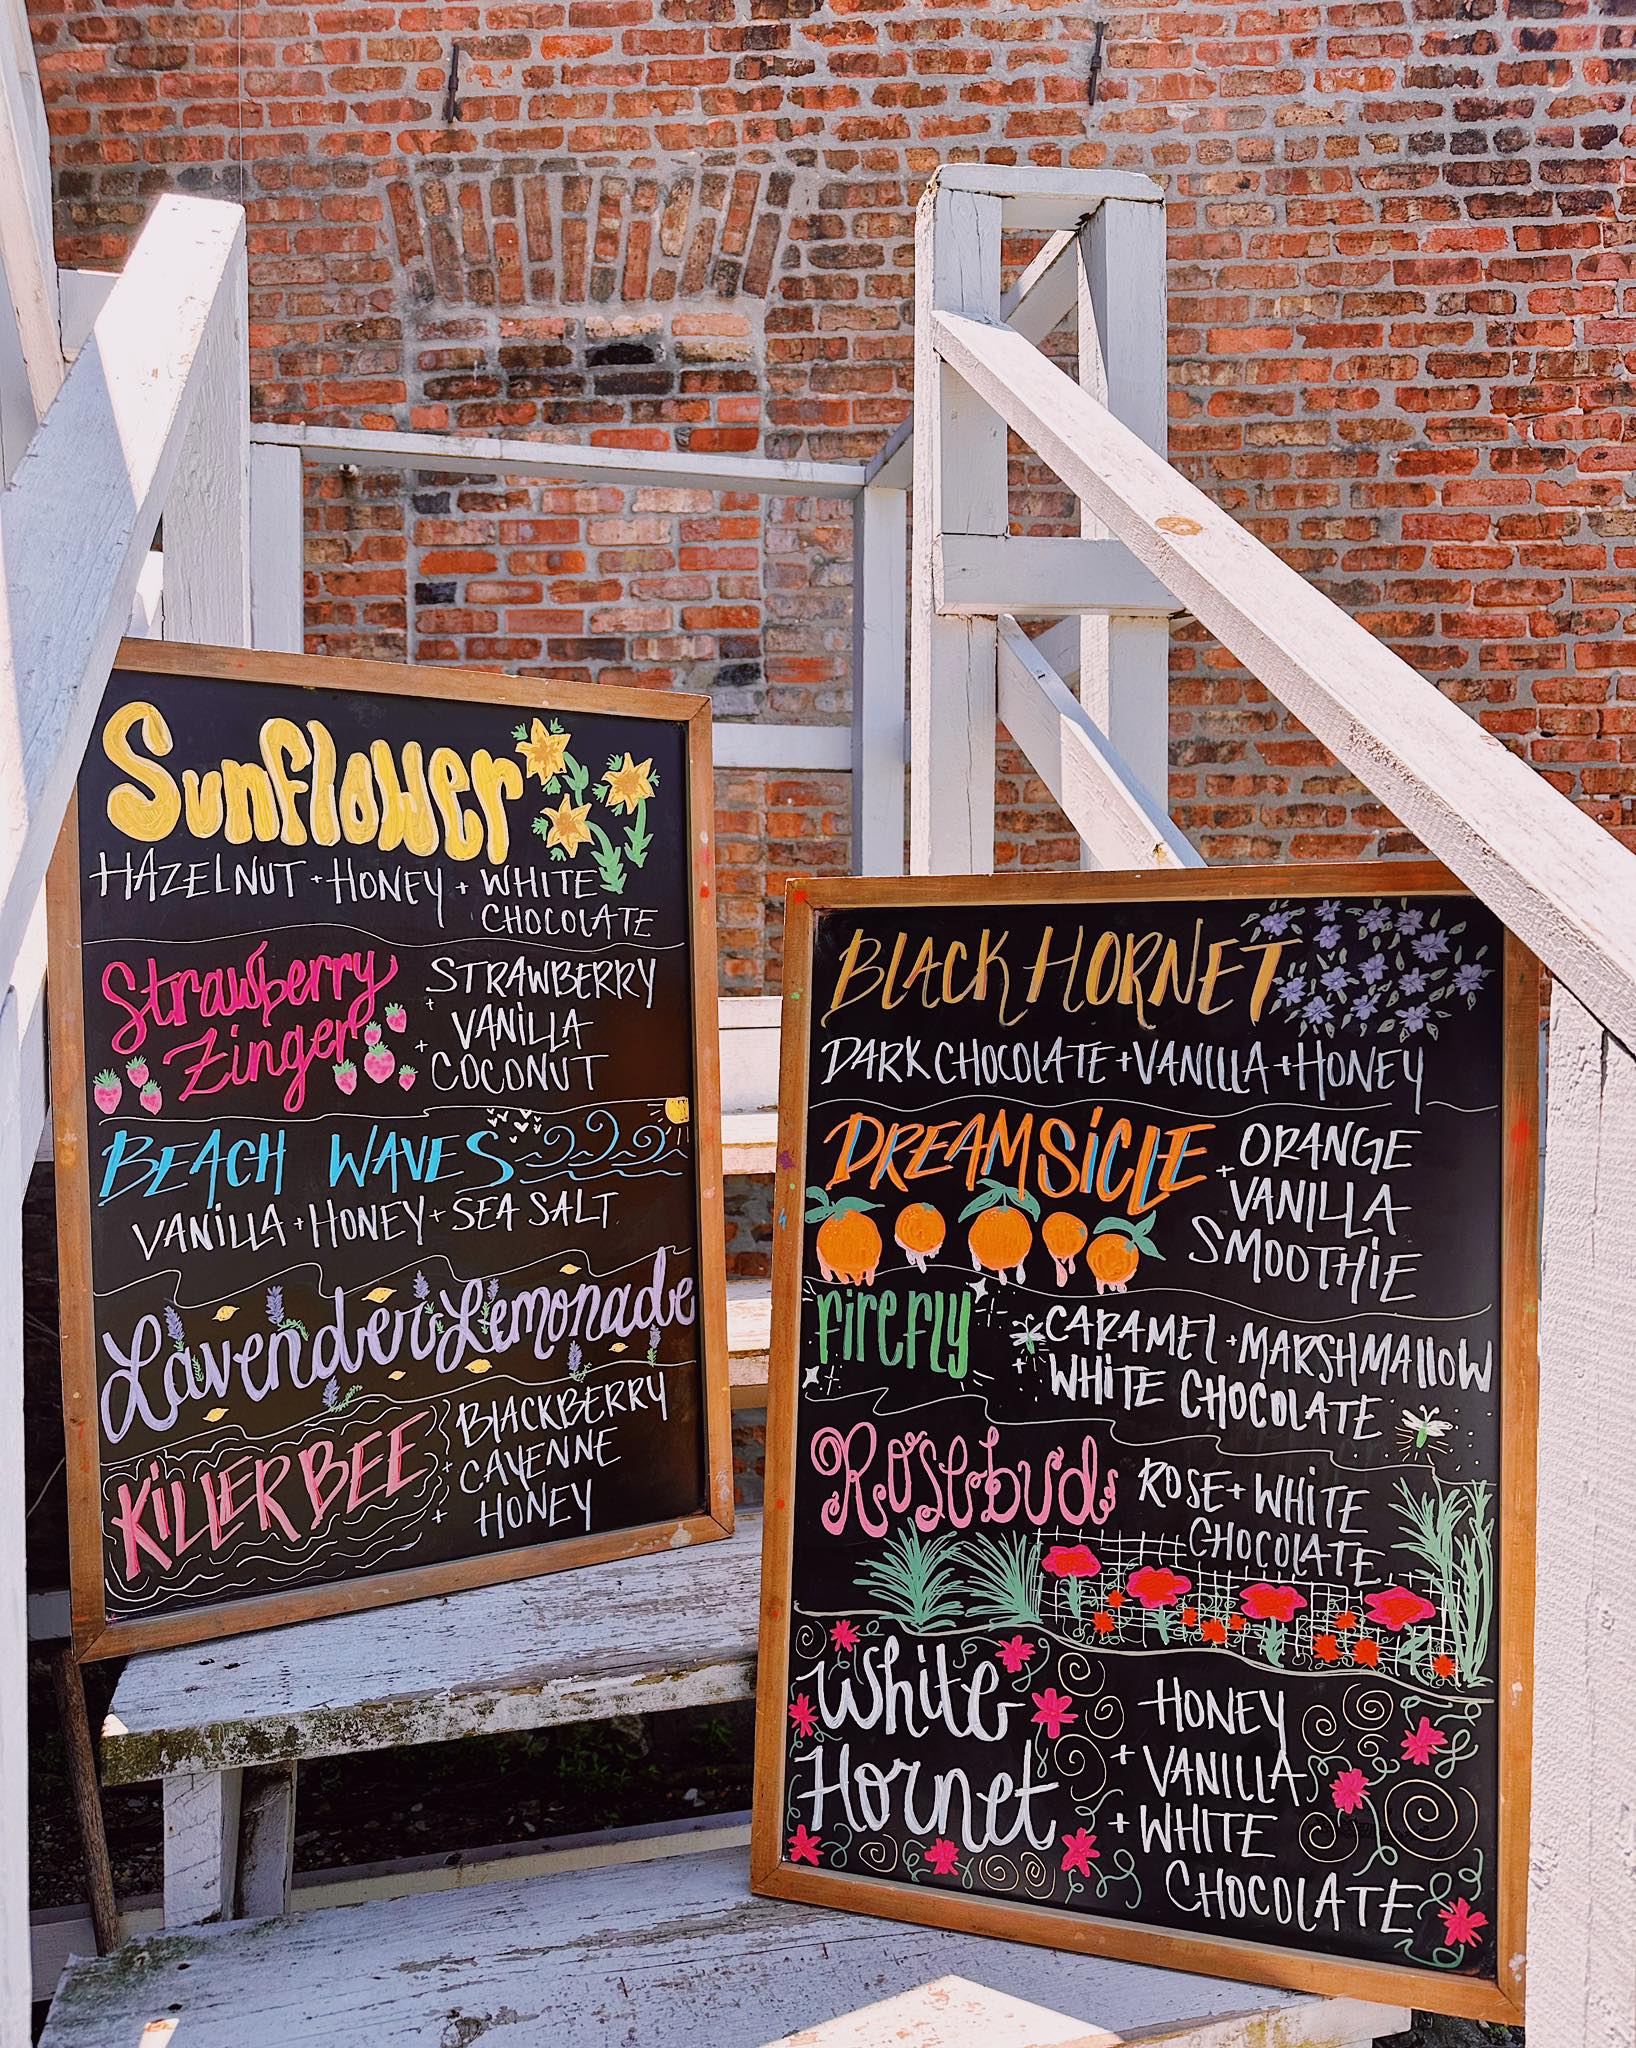 Sunflower
HAZELNUT + HONEY + WHITE
CHOCOLATE
Strawberry
Zinger
STRAWBERRY
+ VANILLA
+ COCONUT
BEACH WAVES
VANILLA + HONEY + SEA SALT
Lavender Lemonade
KILLER BEE
BLACKBERRY
+ CAYENNE
+ HONEY
BLACK HORNET
DARK CHOCOLATE + VANILLA + HONEY
DREAMSiCLE
ORANGE
+ VANILLA
SMOOTHiE
FiREFLY
CARAMEL + MARSHMALLOW
+ WHiTE CHOCOLATE
Rosebud
ROSE + WHiTE
CHOCOLATE
White
Hornet
HONEY
+ VANILLA
+ WHITE
CHOCOLATE